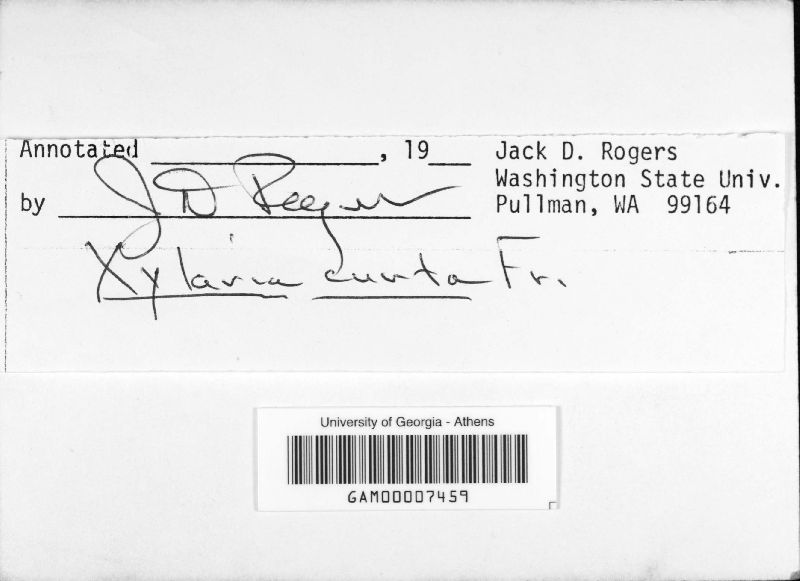 Annotated ____________, 19___ Jack D. Rogers
Washington State Univ.
by J D Rogers Pullman, WA 99164
Xylaria curta Fr.
University of Georgia - Athens
GAM00007459